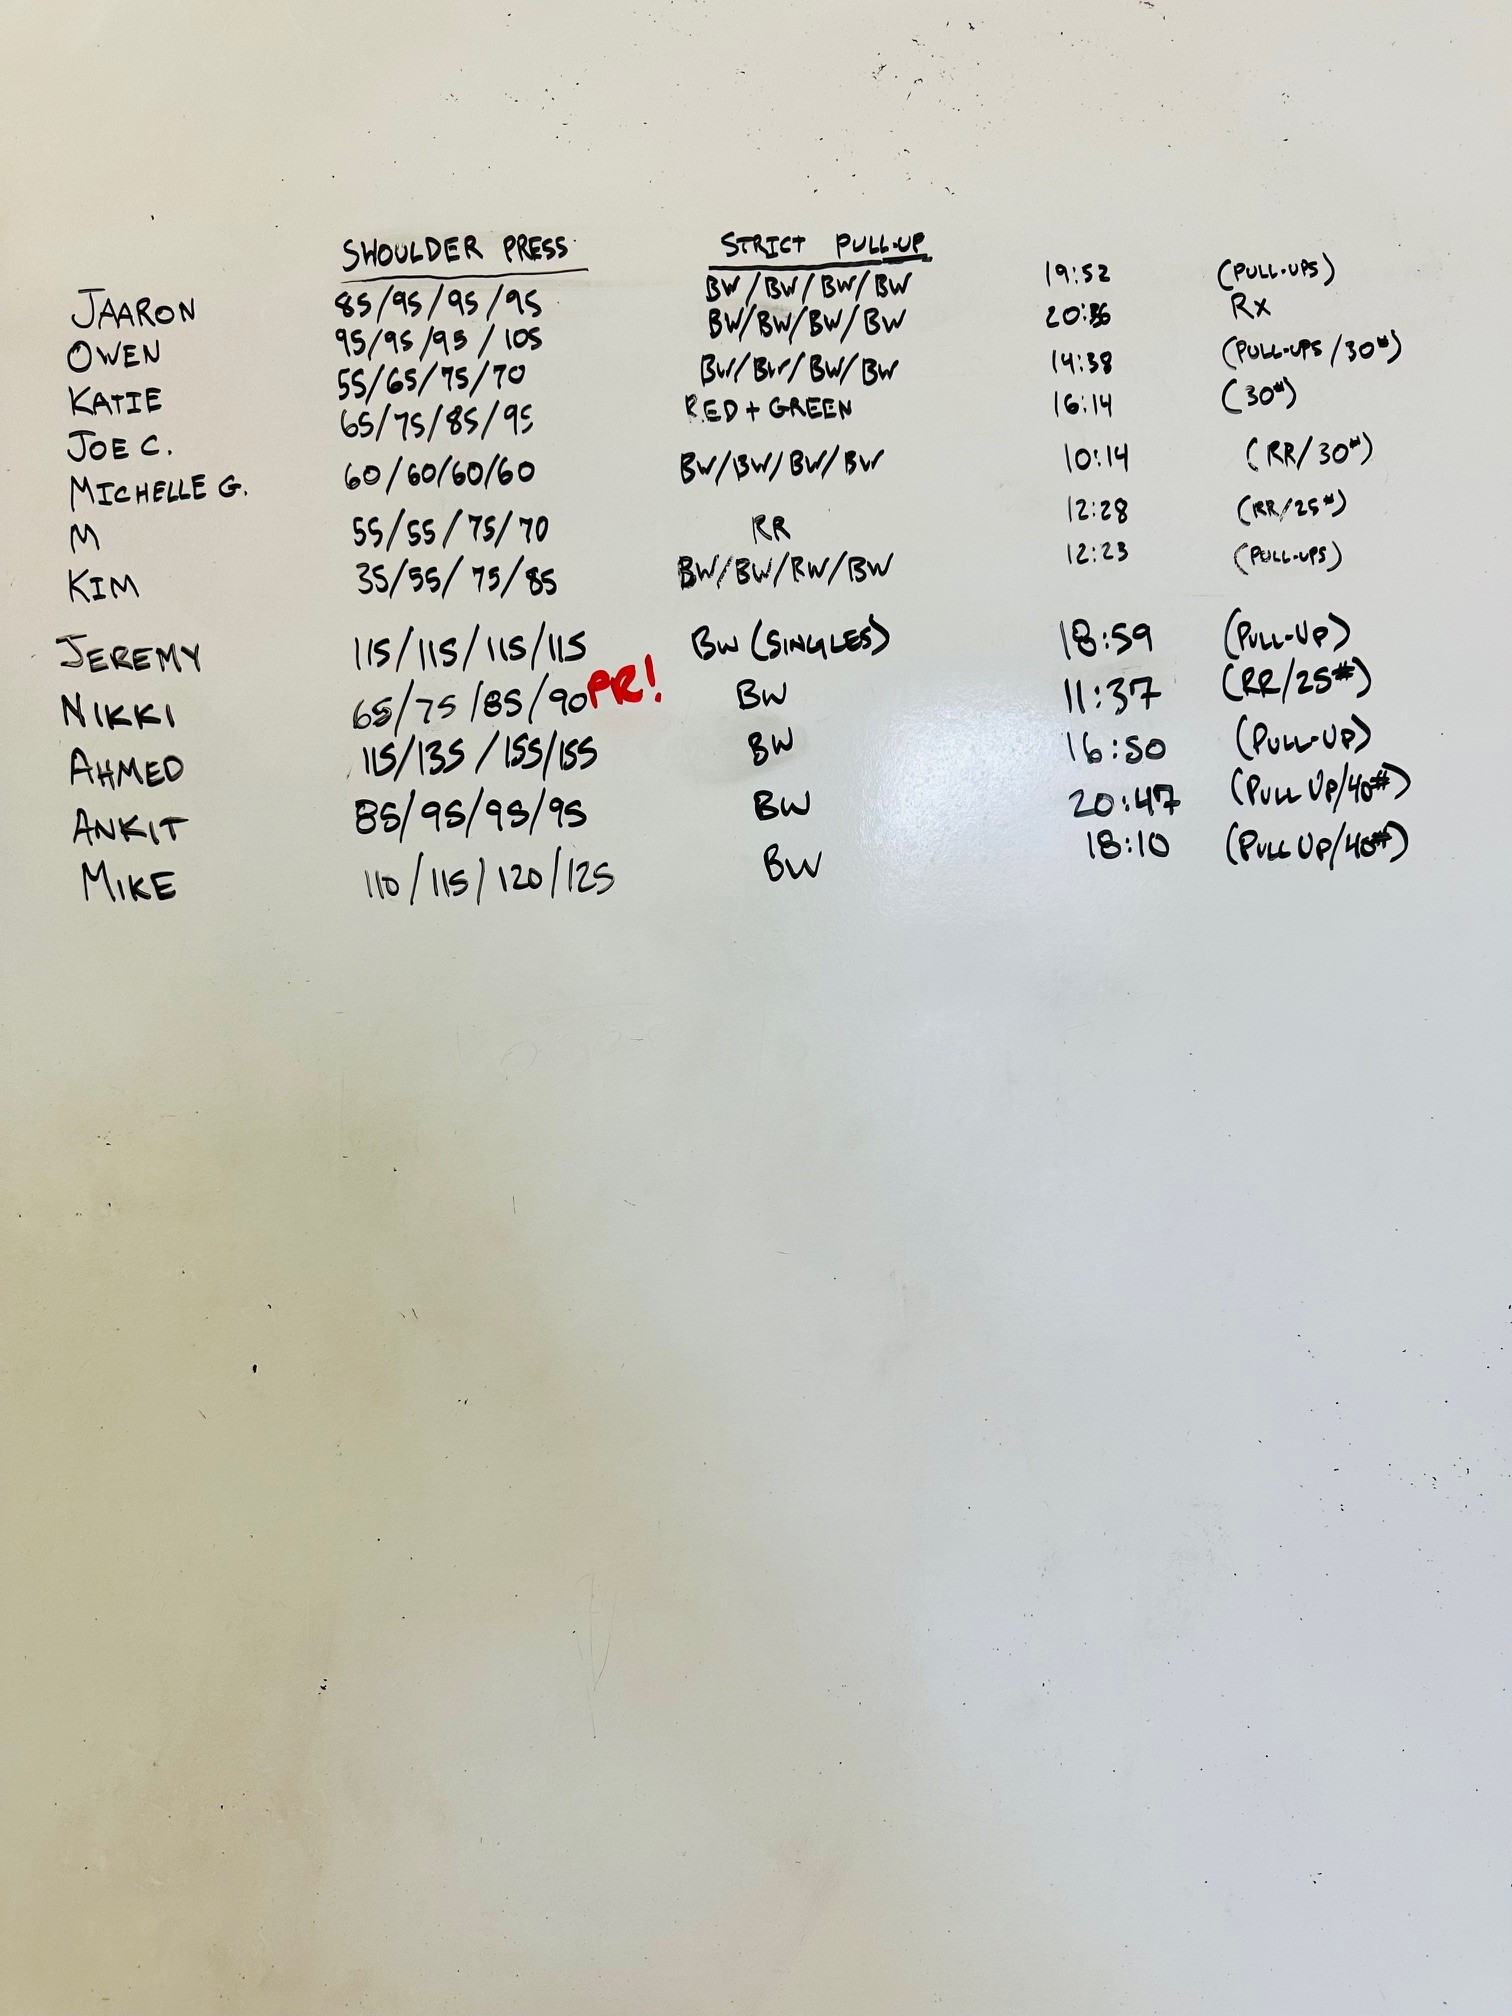 SHOULDER PRESS STRICT PULL-UP
JAARON 85/95/95/95 BW/BW/BW/BW 19:52 (PULL-UPS)
OWEN 95/95/95/105 BW/BW/BW/BW 20:36 RX
KATIE 55/65/75/70 BW/BW/BW/BW 14:38 (PULL-UPS/30#)
JOE C. 65/75/85/95 RED + GREEN 16:14 (30#)
MICHELLE G. 60/60/60/60 BW/BW/BW/BW 10:14 (RR/30#)
M 55/55/75/70 RR 12:28 (RR/25#)
KIM 35/55/75/85 BW/BW/RW/BW 12:23 (PULL-UPS)
JEREMY 115/115/115/115 BW (SINGLES) 18:59 (PULL-UP)
NIKKI 65/75/85/90 PR! BW 11:37 (RR/25#)
AHMED 115/135/155/155 BW 16:50 (PULL-UP)
ANKIT 85/95/95/95 BW 20:47 (PULL UP/40#)
MIKE 110/115/120/125 BW 18:10 (PULL UP/40#)